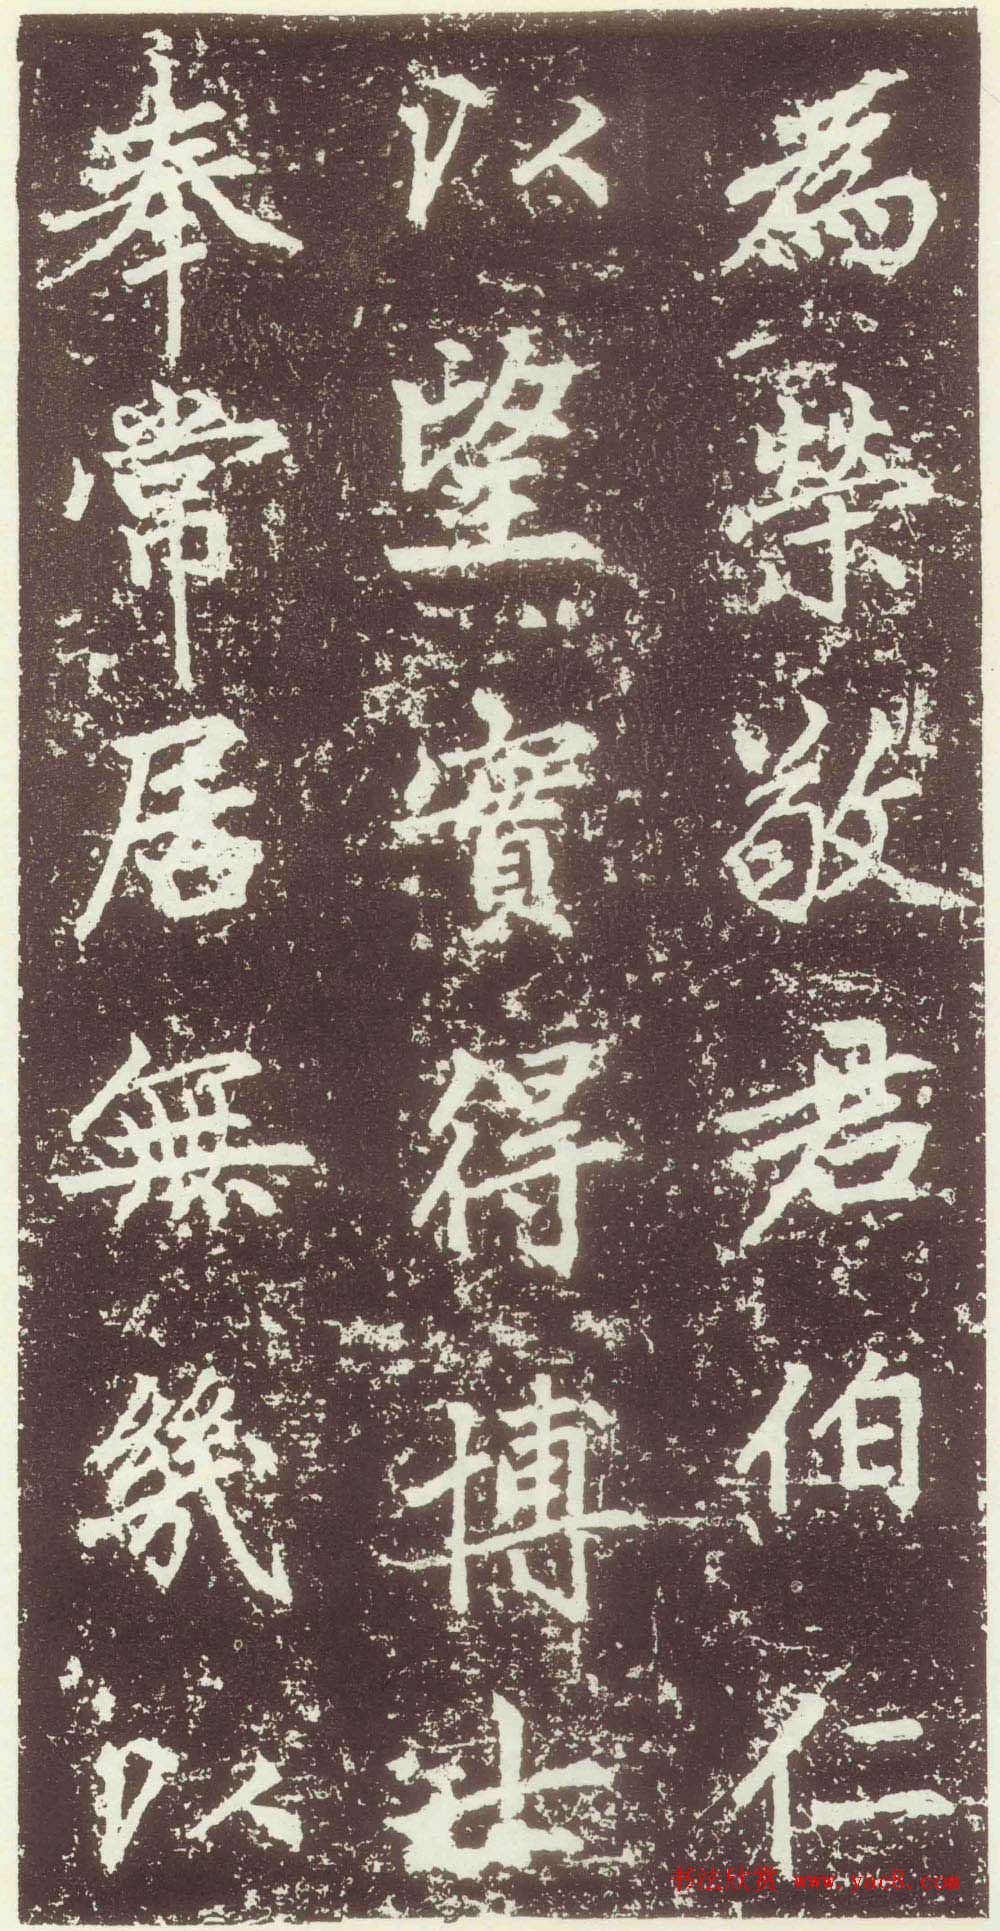 為榮敬君伯仁
以望實得博士
奉常居無幾以
书法欣赏 www.yac8.com